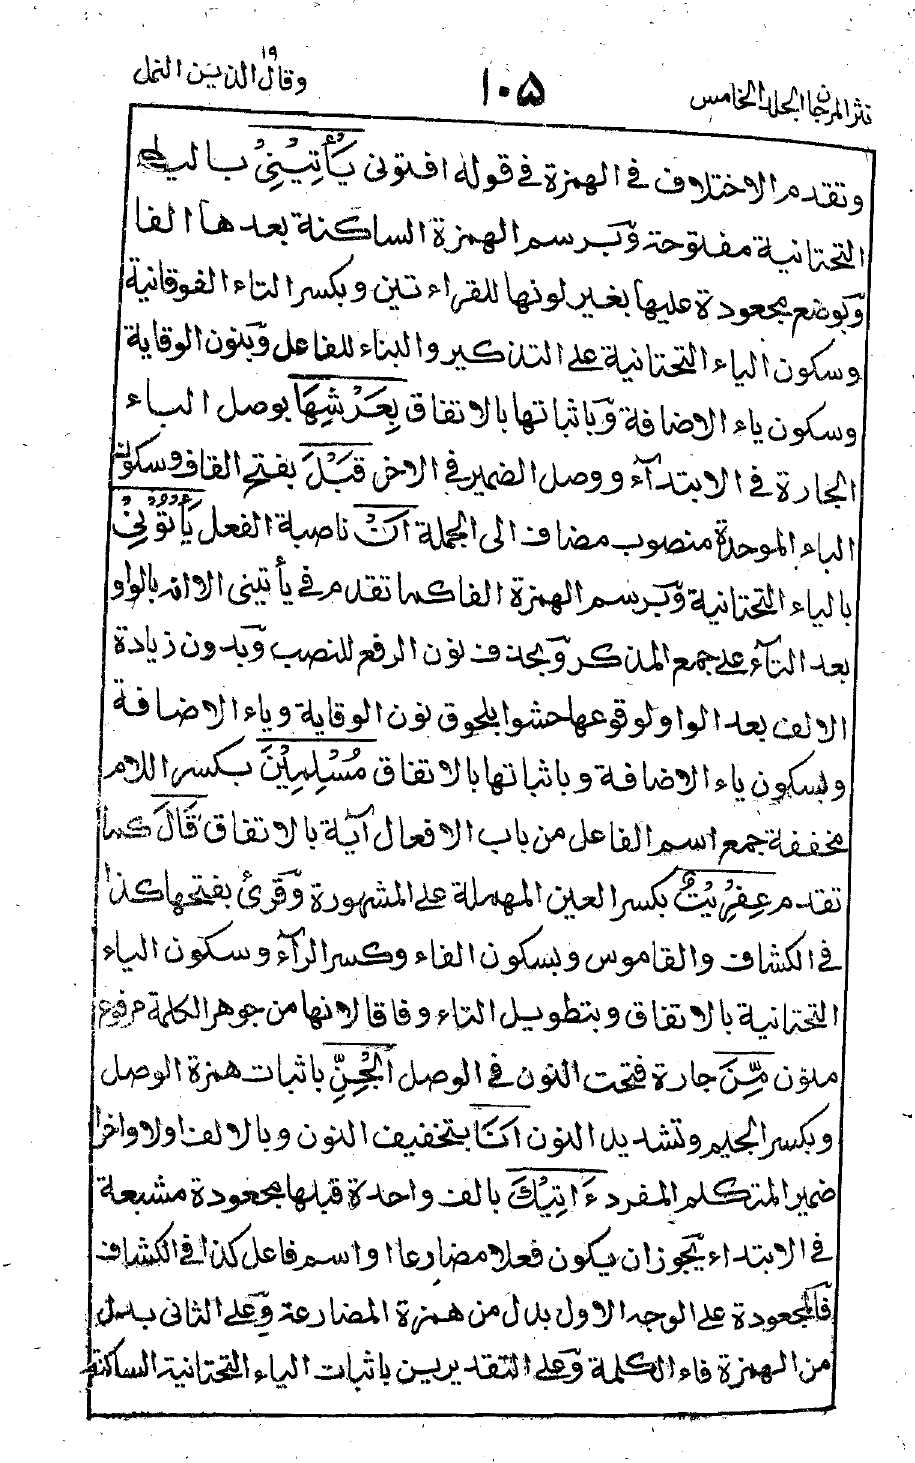 نثر المرجان الجلد الخامس
١٠٥
وقال الذين ١٩ النمل
وتقدم الاختلاف فى الهمزة فى قوله افتونى يَأْتِيْنِيْ بالياء
التحتانية مفتوحة وَبرسم الهمزة الساكنة بعدها الفا
وَبوضع مجعودة عليها بغير لونها للقراءتين وبكسر التاء الفوقانية
وسكون الياء التحتانية على التذكير والبناء للفاعل وَبنون الوقاية
وسكون ياء الاضافة وَباثباتها بالاتفاق بِعَرْشِهَا بوصل الباء
الجارة فى الابتدآء ووصل الضمير فى الاخر قَبْلَ بفتح القاف وسكون
الباء الموحدة منصوب مضاف الى الجملة اَنْ ناصبة الفعل يَأْتُوْنِيْ
بالياء التحتانية وَبرسم الهمزة الفا كما تقدم فى يأتينى الا انه بالواو
بعد التآء على جمع المذكر وَبحذف نون الرفع للنصب وَبدون زيادة
الالف بعد الواو لوقوعها حشوا بلحوق نون الوقاية وياء الاضافة
وبسكون ياء الاضافة وباثباتها بالاتفاق مُسْلِمِيْنَ بكسر اللام
مخففة جمع اسم الفاعل من باب الافعال آية بالاتفاق قَالَ كما
تقدم عِفْرِيْتٌ بكسر العين المهملة على المشهورة وَقرئ بفتحها كذا
فى الكشاف والقاموس وبسكون الفاء وكسر الرآء وسكون الياء
التحتانية بالاتفاق وبتطويل التاء وفاقا لانها من جوهر الكلمة مرفوع
منون مِّنَ جارة فتحت النون فى الوصل الْجِنِّ باثبات همزة الوصل
وبكسر الجيم وتشديد النون اَنَا بتخفيف النون وبالالف اولا واخرا
ضمير المتكلم المفرد ءَاتِيْكَ بالف واحدة قبلها مجعودة مشبعة
فى الابتداء يَجوز ان يكون فعلا مضارعا او اسم فاعل كذا فى الكشاف
فَالمجعودة على الوجه الاول بدل من همزة المضارعة وَعلى الثانى بدل
من الهمزة فاء الكلمة وَعلى التقديرين باثبات الياء التحتانية الساكنة